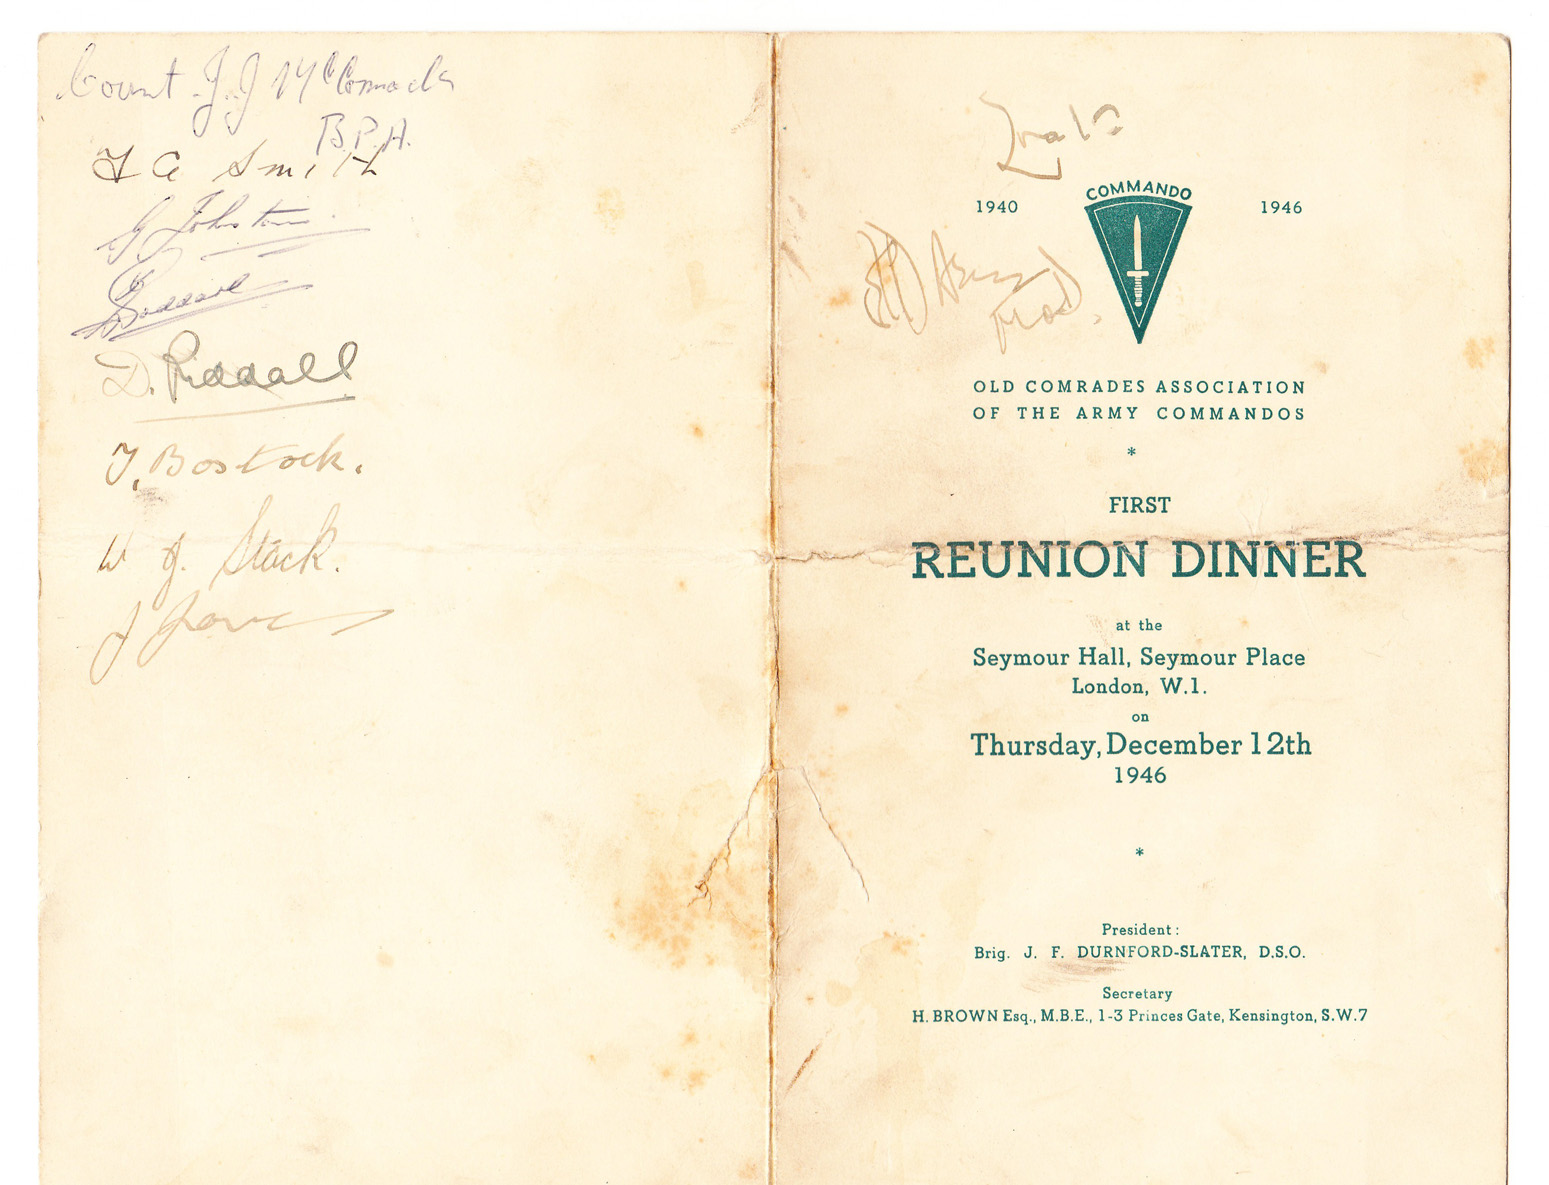 Count J. J
B.P.A.
Smith
G Johnston
D. Riddall
T. Bostock.
W J. Stack.
COMMANDO
1940 1946
OLD COMRADES ASSOCIATION
OF THE ARMY COMMANDOS
*
FIRST
REUNION DINNER
at the
Seymour Hall, Seymour Place
London, W.1.
on
Thursday, December 12th
1946
*
President :
Brig. J. F. DURNFORD-SLATER, D.S.O.
Secretary
H. BROWN Esq., M.B.E., 1-3 Princes Gate, Kensington, S.W.7